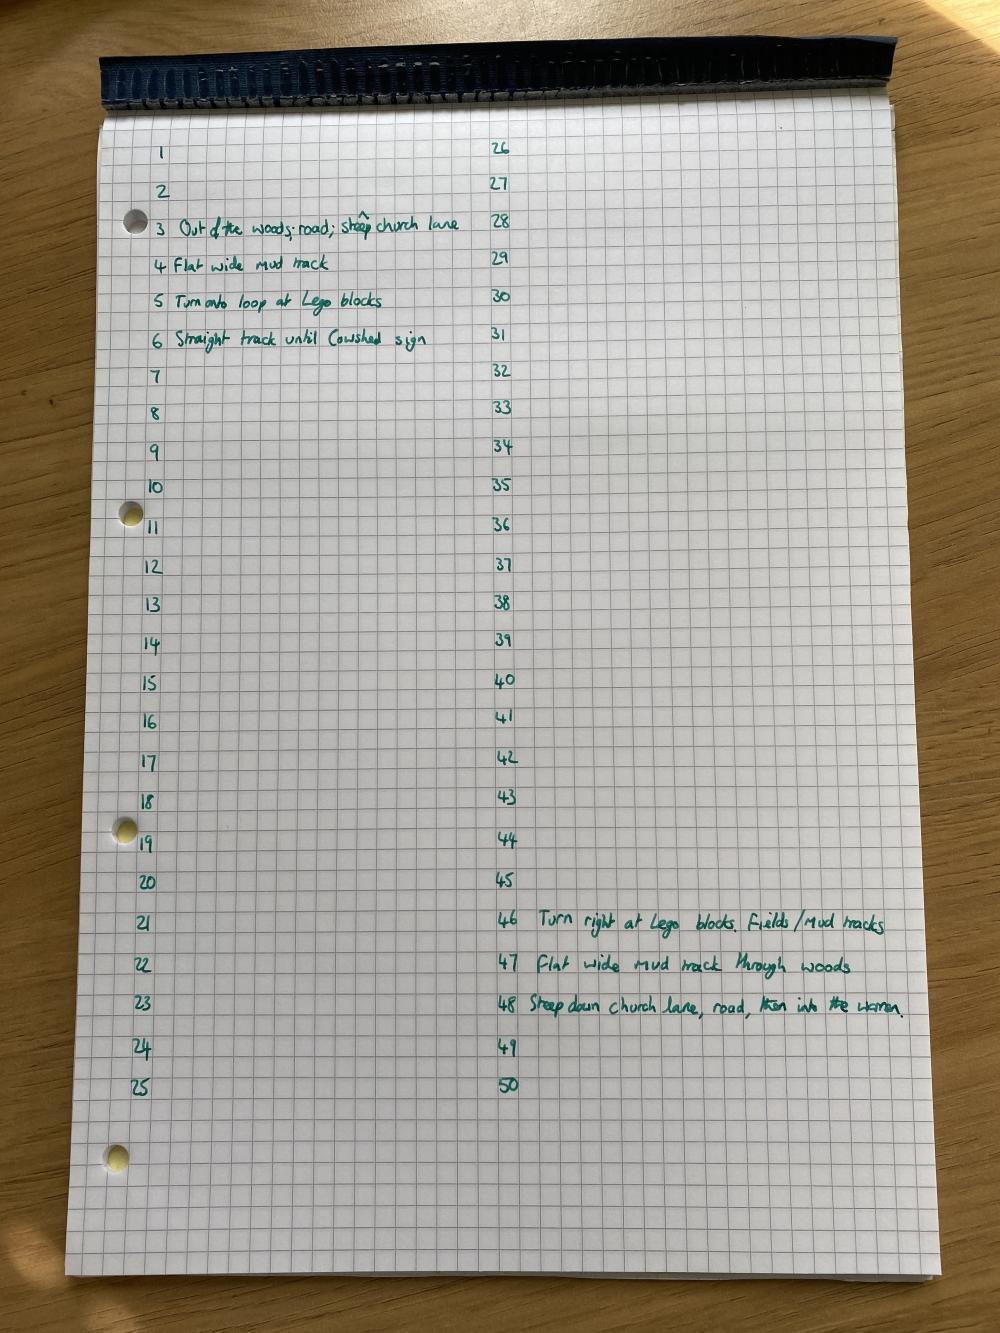 1
2
3 Out of the woods; road; steep ^ church lane
4 Flat wide mud track
5 Turn onto loop at Lego blocks
6 Straight track until Cowshed sign
7
8
9
10
11
12
13
14
15
16
17
18
19
20
21
22
23
24
25
26
27
28
29
30
31
32
33
34
35
36
37
38
39
40
41
42
43
44
45
46 Turn right at Lego blocks. Fields/Mud tracks
47 Flat wide mud track through woods
48 Steep down church lane, road, then into the warren.
49
50